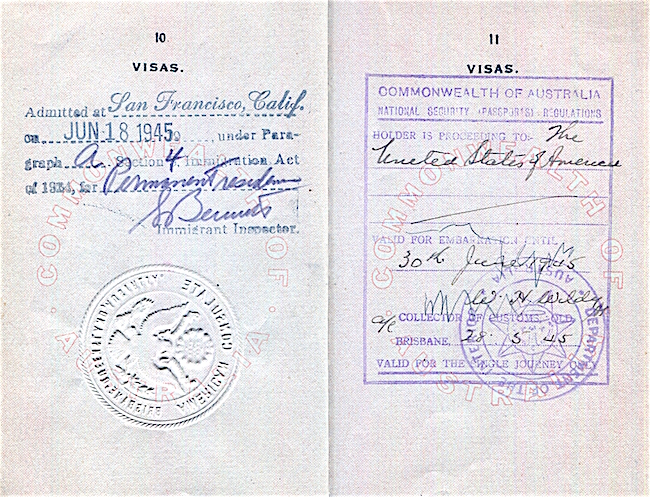 10
VISAS.
Admitted at San Francisco, Calif.
on JUN 18 1945, under Para-
graph A Section 4 Immigration Act
of 1924, for Permanent residence
Bennett
Immigrant Inspector.
AMERICAN CONSULATE
COMMONWEALTH OF AUSTRALIA
11
VISAS.
COMMONWEALTH OF AUSTRALIA
NATIONAL SECURITY (PASSPORTS) REGULATIONS
HOLDER IS PROCEEDING TO:- The
United States of America
VALID FOR EMBARKATION UNTIL
30th June 1945
a/c COLLECTOR OF CUSTOMS, QLD.
BRISBANE, 28. 5. 45
VALID FOR THE SINGLE JOURNEY ONLY
DEPARTMENT OF THE
AUSTRALIA
COMMONWEALTH OF AUSTRALIA